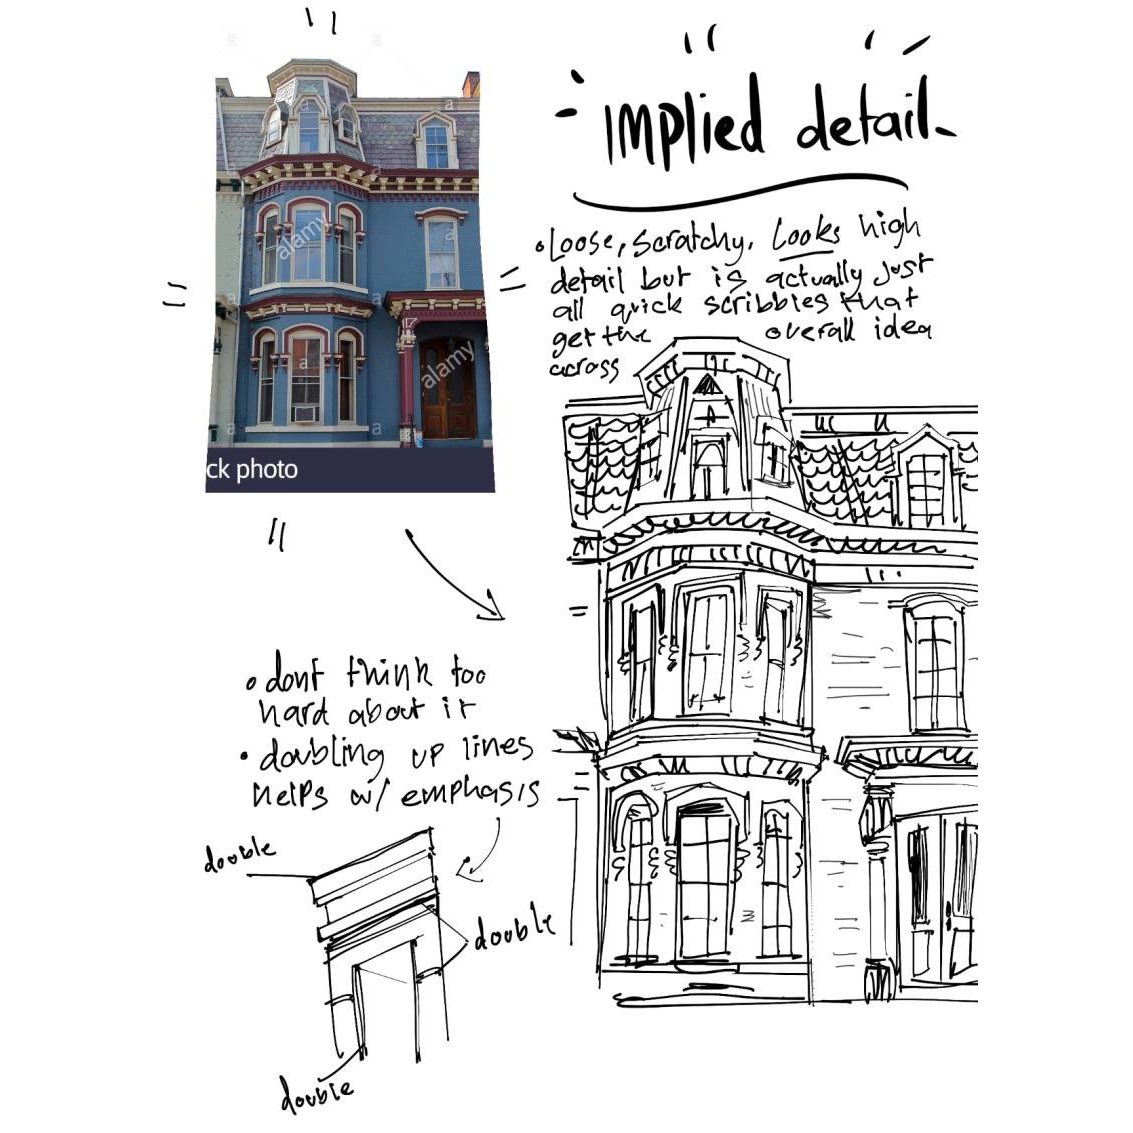 implied detail
•Loose, scratchy. Looks high
detail but is actually just
all quick scribbles that
get the overall idea
across
alamy
a
alamy
a
ck photo
• dont think too
hard about it
• doubling up lines
helps w/ emphasis
double
double
double